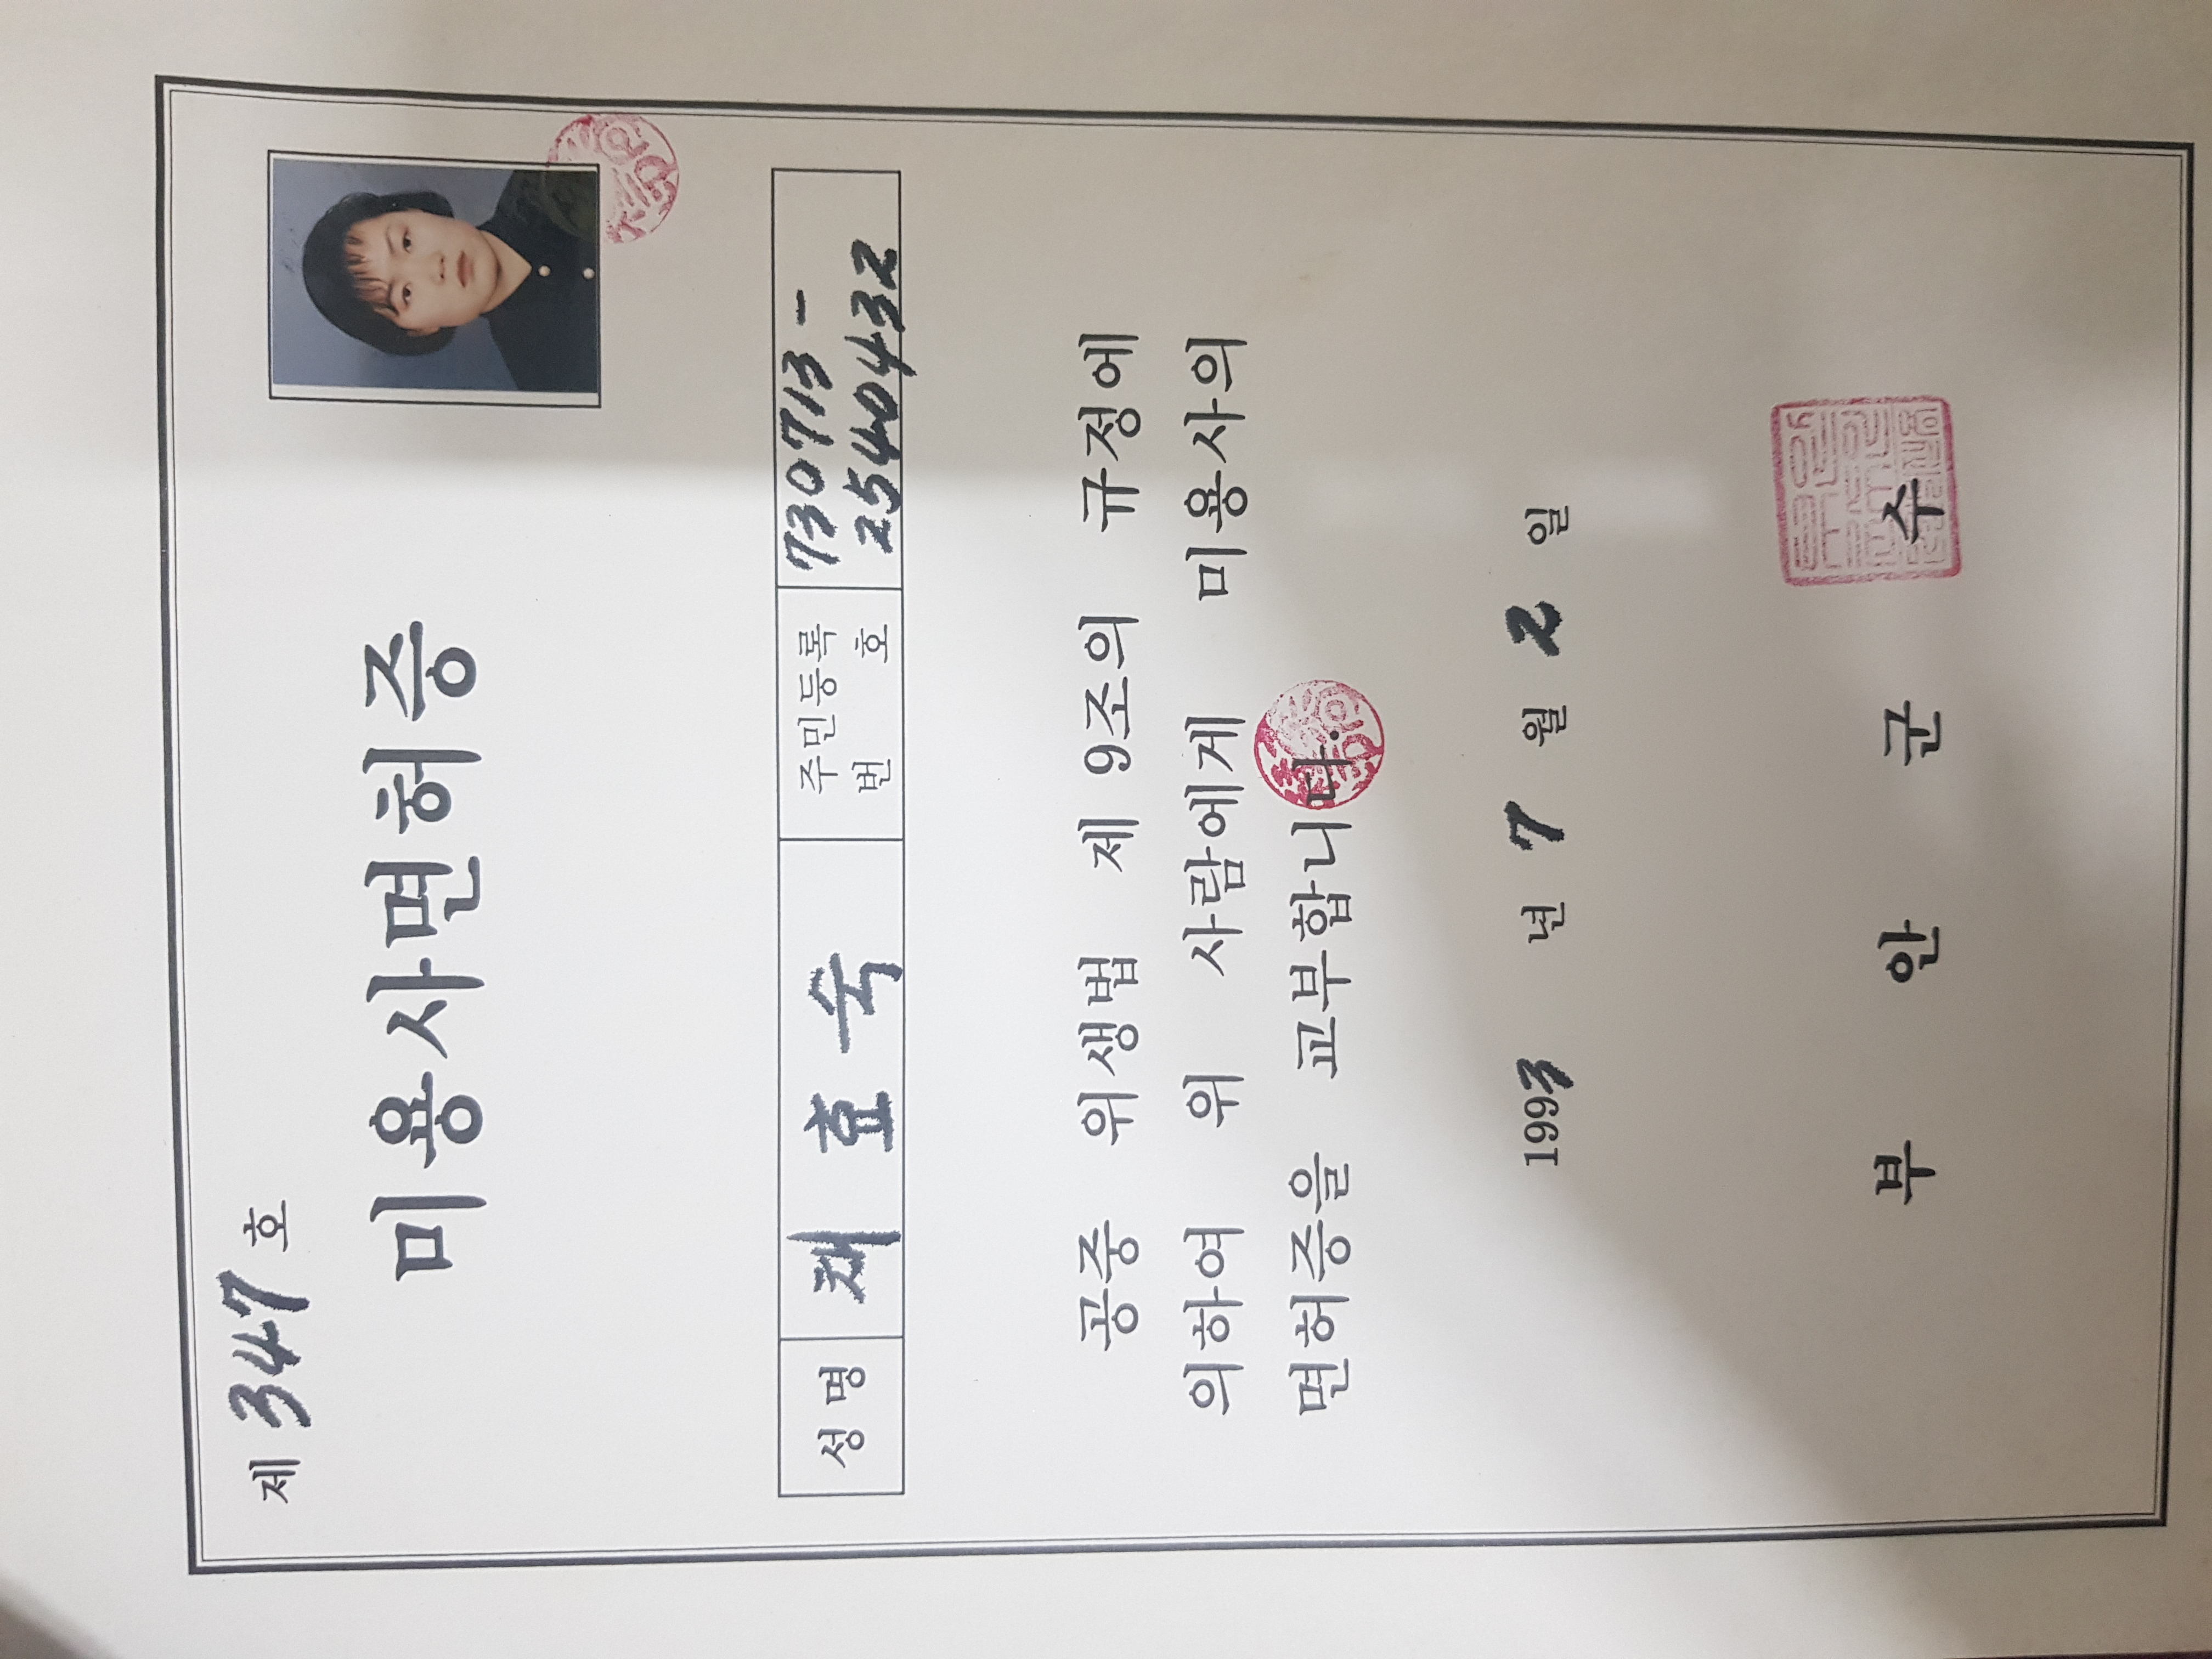 제 347 호
미용사면허증
성 명 채 효 숙 주민등록 번 호 730713-
2540432
공중 위생법 제 9조의 규정에
의하여 위 사람에게 미용사의
면허증을 교부합니다.
1993 년 7 월 2 일
부 안 군 수